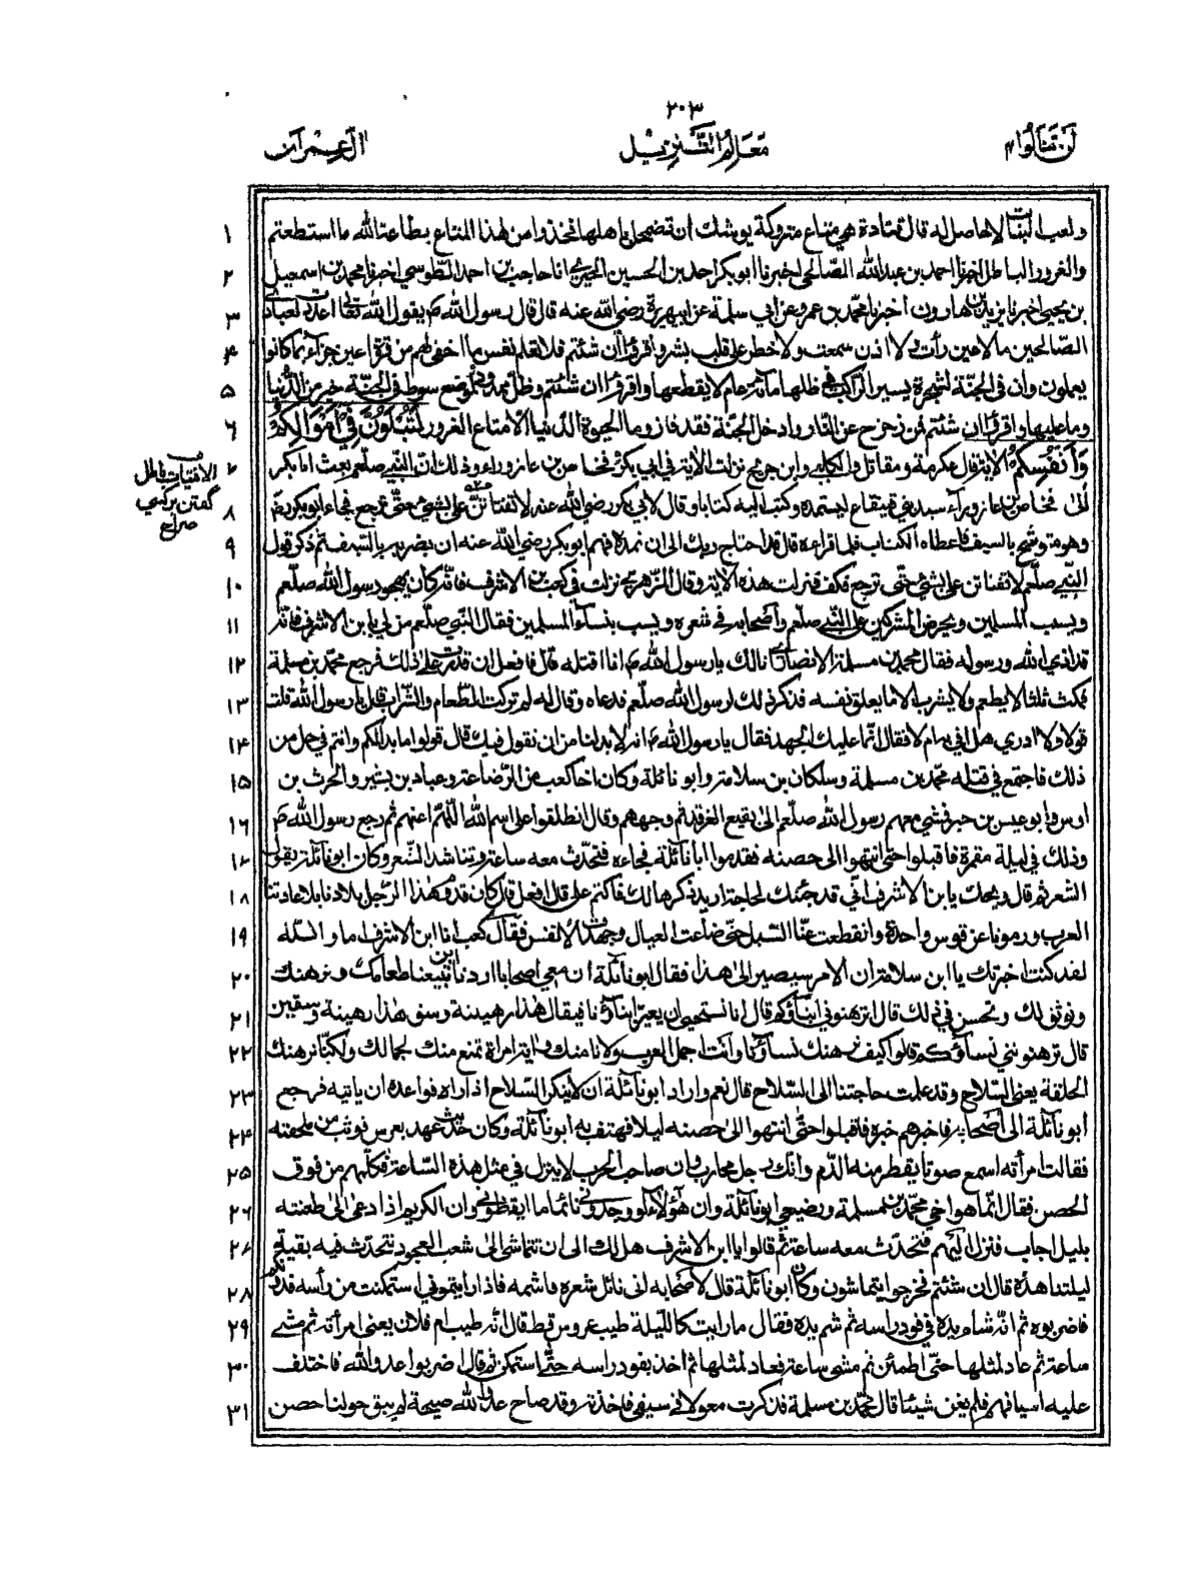 ٢٠٣
لن تنالوا ٤
معالم التنزيل
اٰل عمران
١ ولعب البنات لا حاصل له قال قتادة هي متاع متروكة يوشك ان تضمحل باهلها فخذوا من هذا المتاع بطاعة الله ما استطعتم
٢ والغرور الباطل اخبرنا احمد بن عبد الله الصالحي اخبرنا ابو بكر احمد بن الحسين الحيري انا حاجب بن احمد الطوسي اخبرنا محمد بن اسمعيل
٣ بن يحيى اخبرنا يزيد بن هارون اخبرنا محمد بن عمرو عن ابي سلمة عن ابي هريرة رضي الله عنه قال قال رسول الله ص يقول الله تعالى اعددت لعبادي
٤ الصالحين ما لا عين رأت ولا اذن سمعت ولا خطر على قلب بشر واقرؤا ان شئتم فلا تعلم نفس ما اخفي لهم من قرة اعين جزاء بما كانوا
٥ يعملون وان في الجنة لشجرة يسير الراكب في ظلها مائة عام لا يقطعها واقرؤا ان شئتم وظل ممدود ولموضع سوط في الجنة خير من الدنيا
٦ وما عليها واقرؤا ان شئتم فمن زحزح عن النار وادخل الجنة فقد فاز وما الحيوة الدنيا الا متاع الغرور لَتُبْلَوُنَّ فِيْ اَمْوَالِكُمْ
٧ وَاَنْفُسِكُمْ الاية قال عكرمة ومقاتل والكلبي وابن جريج نزلت الاية في ابي بكر وفنحاص بن عازوراء وذلك ان النبي صلعم بعث ابا بكر
٨ الى فنحاص بن عازوراء سيد بني قينقاع ليستمده وكتب اليه كتابا وقال لابي بكر رضي الله عنه لا تفتاتن علي بشئ حتى ترجع فجاء ابو بكر رض
٩ وهو متوشح بالسيف فاعطاه الكتاب فلما قرأه قال قد احتاج ربك الى ان نمده فهم ابو بكر رضي الله عنه ان يضربه بالسيف ثم ذكر قول
١٠ النبي صلعم لا تفتاتن علي بشئ حتى ترجع فكف فنزلت هذه الاية وقال الزهري نزلت في كعب بن الاشرف فانه كان يهجو رسول الله صلعم
١١ ويسب المسلمين ويحرض المشركين على النبي صلعم واصحابه في شعره ويسب بنساء المسلمين فقال النبي صلعم من لي بابن الاشرف فانه
١٢ قد اذى الله ورسوله فقال محمد بن مسلمة الانصاري انا لك يا رسول الله ص انا اقتله قال فافعل ان قدرت على ذلك فرجع محمد بن مسلمة
١٣ فمكث ثلثا لا يطعم ولا يشرب الا ما يعلق نفسه فذكر ذلك لرسول الله صلعم فدعاه وقال له لم تركت الطعام والشراب قال يا رسول الله قلت
١٤ قولا ولا ادري هل افي به ام لا فقال انما عليك الجهد فقال يا رسول الله ص انه لا بد لنا من ان نقول فيك قال قولوا ما بدا لكم وانتم في حل من
١٥ ذلك فاجتمع في قتله محمد بن مسلمة وسلكان بن سلامة وابو نائلة وكان اخا كعب من الرضاعة وعباد بن بشير والحرث بن
١٦ اوس وابو عيس بن حبر فمشي معهم رسول الله صلعم الى بقيع الغرقد ثم وجههم وقال انطلقوا على اسم الله اللهم اعنهم ثم رجع رسول الله ص
١٧ وذلك في ليلة مقمرة فاقبلوا حتى انتهوا الى حصنه فقدموا ابا نائلة فجاءه فتحدث معه ساعة وتناشد الشعر وكان ابو نائلة يقول
١٨ الشعر ثم قال ويحك يا بن الاشرف اني قد جئتك لحاجة اريد ذكرها لك فاكتم علي قال افعل قال كان قدوم هذا الرجل بلادنا بلاء عادتنا
١٩ العرب ورمونا عن قوس واحدة وانقطعت عنا السبل حتى ضاعت العيال وجهدت الانفس فقال كعب انا ابن الاشرف اما والله
٢٠ لقد كنت اخبرتك يا ابن سلامة ان الامر سيصير الى هذا فقال ابو نائلة ان معي اصحابا اردنا ان تبيعنا طعامك ونرهنك
٢١ ونوثق لك وتحسن في ذلك قال اترهنوني ابناؤكم قال انا نستحيي ان يعير ابناؤنا فيقال هذا رهينة وسق وهذا رهينة وسقين
٢٢ قال ترهنونني نساؤكم قالوا كيف نرهنك نساؤنا وانت اجمل العرب ولا نامنك واية امراة تمتنع منك لجمالك ولكنا نرهنك
٢٣ الحلقة يعني السلاح وقد علمت حاجتنا الى السلاح قال نعم واراد ابو نائلة ان لا ينكر السلاح اذا راه فواعده ان ياتيه فرجع
٢٤ ابو نائلة الى اصحابه فاخبرهم خبره فاقبلوا حتى انتهوا الى حصنه ليلا فهتف به ابو نائلة وكان حديث عهد بعرس فوثب من ملحفته
٢٥ فقالت امرأته اسمع صوتا يقطر منه الدم وانك رجل محارب وان صاحب الحرب لا ينزل في مثل هذه الساعة فكلمهم من فوق
٢٦ الحصن فقال انما هو اخي محمد بن مسلمة ورضيعي ابو نائلة وان هؤلاء لو وجدوني نائما ما ايقظوني وان الكريم اذا دعى الى طعنة
٢٧ بليل اجاب فنزل اليهم فتحدث معه ساعة ثم قالوا يا ابن الاشرف هل لك الى ان نتماشى الى شعب العجوز نتحدث فيه بقية
٢٨ ليلتنا هذه قال ان شئتم فخرجوا يتماشون وكان ابو نائلة قال لاصحابه اني نائل شعره فاشمه فاذا رايتموني استمكنت من رأسه فدونكم
٢٩ فاضربوه ثم انه شام يده في فود راسه ثم شم يده فقال ما رايت كالليلة طيب عروس قط قال انه طيب ام فلان يعني امرأته ثم مشى
٣٠ ساعة ثم عاد لمثلها حتى اطمئن ثم مشى ساعة فعاد لمثلها ثم اخذ بفود راسه حتى استمكن ثم قال اضربوا عدو الله فاختلف
٣١ عليه اسيافهم فلم تغن شيئا قال محمد بن مسلمة فذكرت معولا في سيفي فاخذته وقد صاح عدو الله صيحة لم يبق حولنا حصن
الافتيات باطل
گفتن بر کسی
صراح